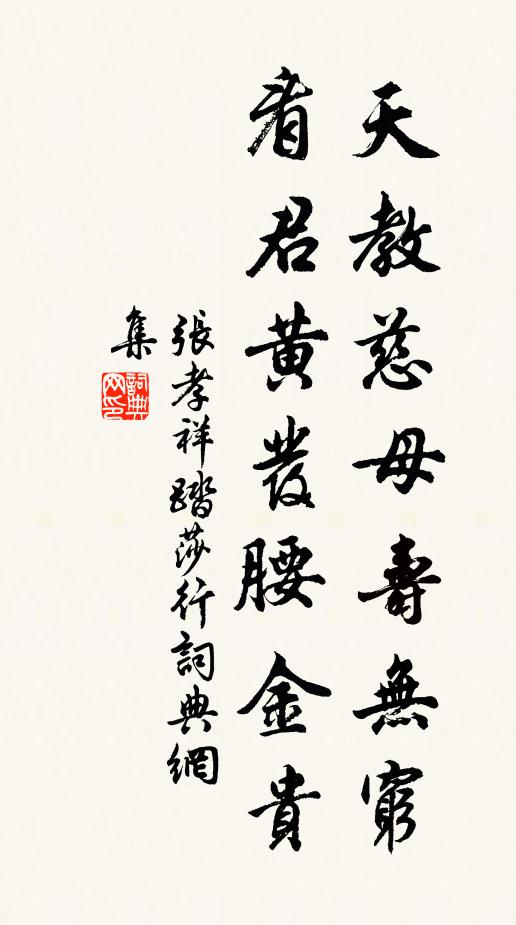 天教慈母壽無窮
看君黃發腰金貴
張孝祥踏莎行詞典網
集
詞典网印